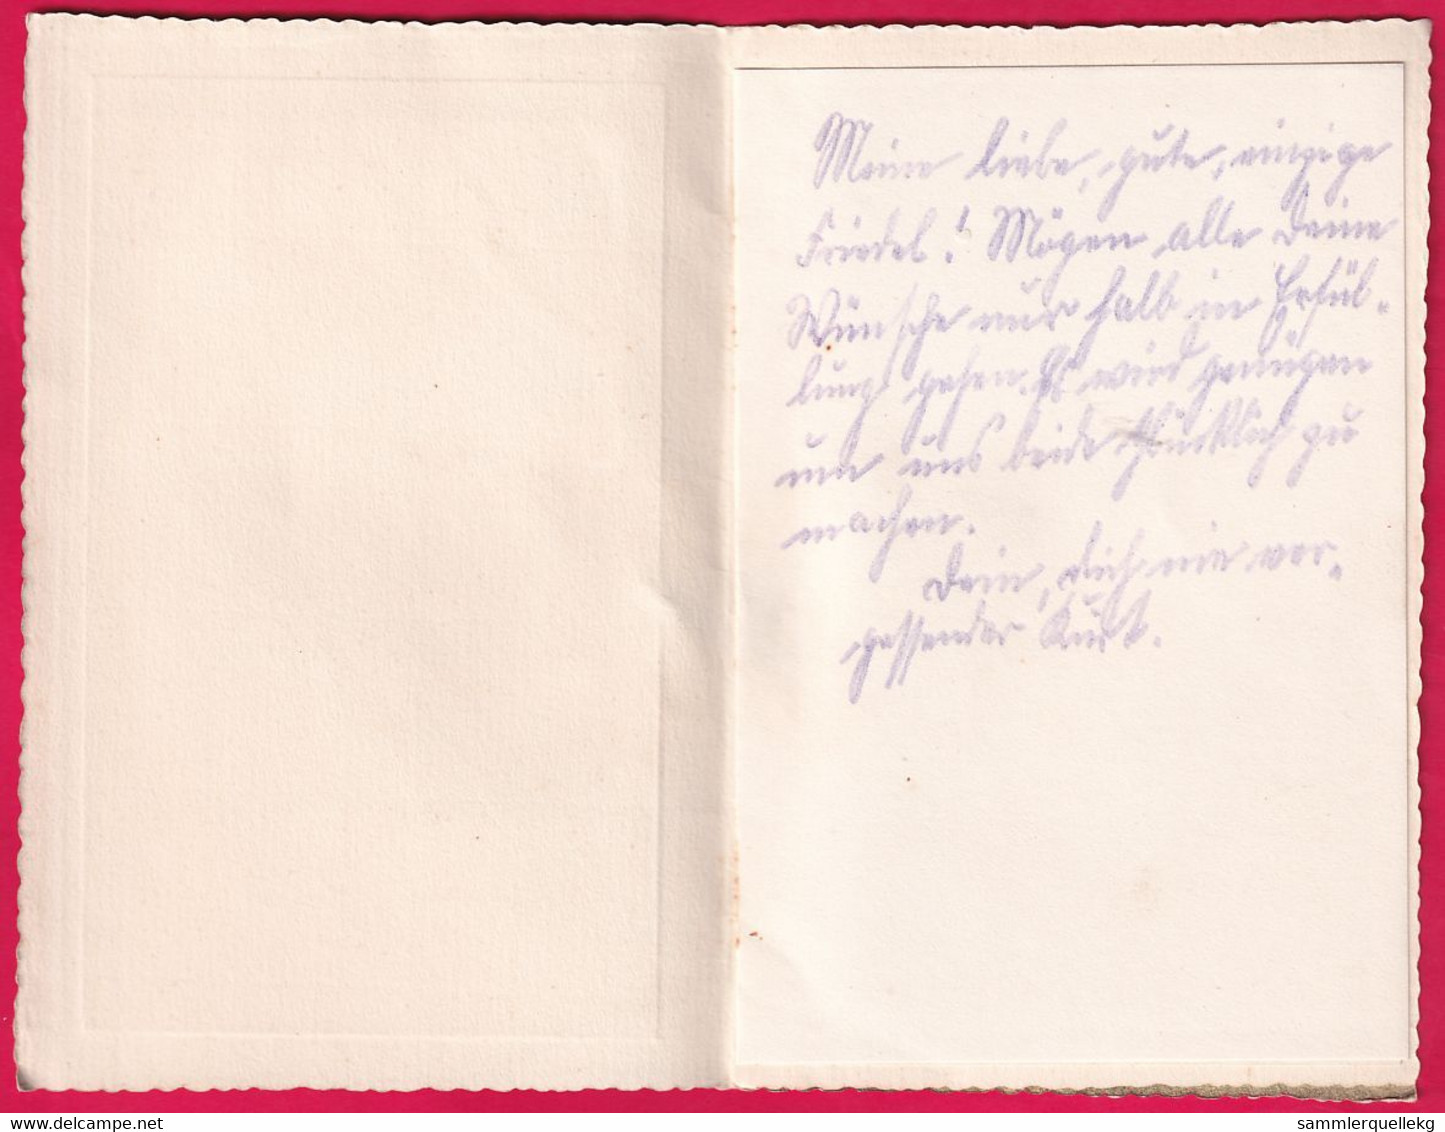 Meine liebe, gute, einzige
Friedel! Mögen alle Deine
Wünsche nur halb in Erfül-
lung gehen. Es wird genügen
um uns beide glücklich zu
machen.
Dein, Dich nie ver-
gessender Kurt.
sammlerquellekg
delcampe.net